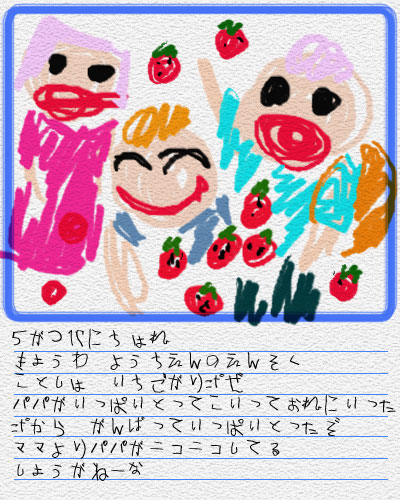 5がつ にち はれ
きょうわ ようちえんのえんそく
ことしは いちごがりだぜ
パパがいっぱいとってこいっておれにいった
だから がんばっていっぱいとったぞ
ママよりパパがニコニコしてる
しょうがねーな